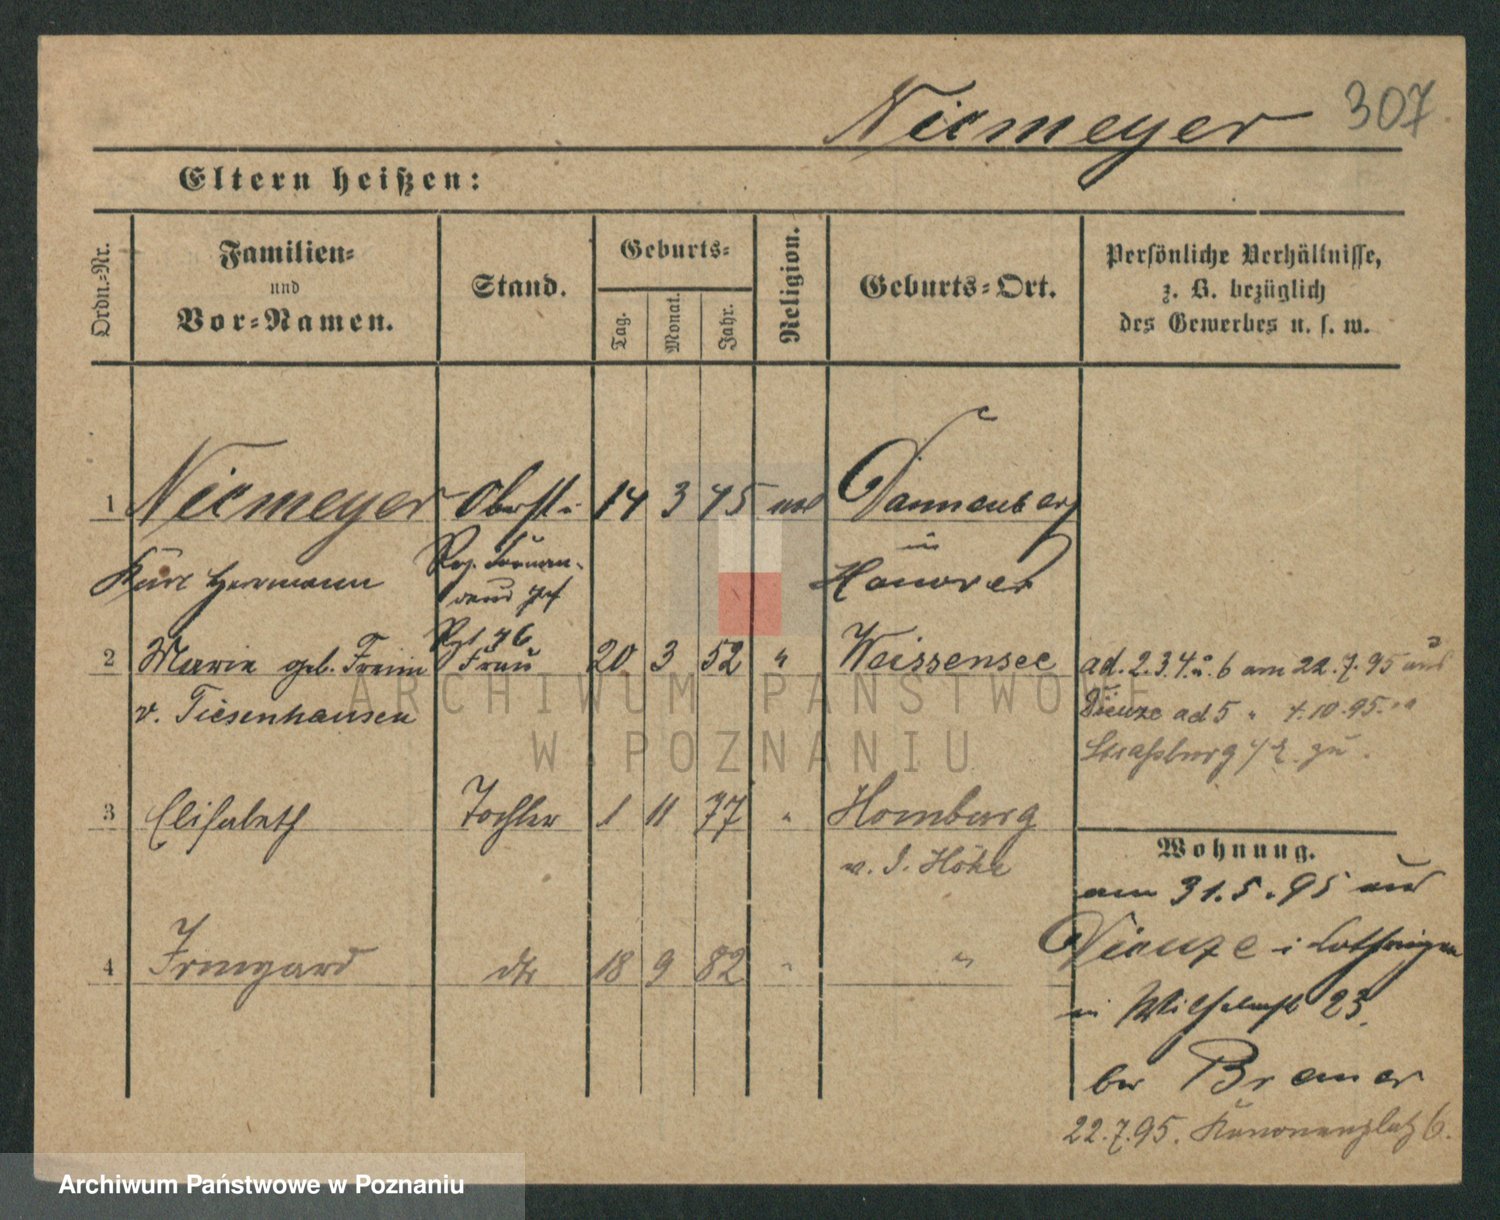 Niemeyer 307
Eltern heißen:
Ordn.-Nr.
Familien-
und
Vor-Namen.
Stand.
Geburts-
Tag. Monat. Jahr.
Religion.
Geburts-Ort.
Persönliche Verhältnisse,
z. B. bezüglich
des Gewerbes u. s. w.
1 Niemeyer Oberst u. 14 3 45 Dannenberg
Karl Hermann
in
Hanover
Rgt. 46
2 Marie geb. Freiin Frau 20. 3 52 " Weissensee
v. Tiesenhausen
ad. 2.3.4. u. 6 am 22.7.95 aus
Dieuze ad 5 " 4.10.95.
Straßburg i/E. zu.
3 Elisabeth Tochter 1 11 77 " Homburg
v. d. Höhe
4 Irmgard dto 18 9 82 " "
Wohnung.
am 31.5.95 aus
Dieuze i Lothringen
in Wilhelmstr 23,
bei Bremer
22.7.95. Kanonenplatz 6.
ARCHIWUM PAŃSTWOWE
W POZNANIU
Archiwum Państwowe w Poznaniu